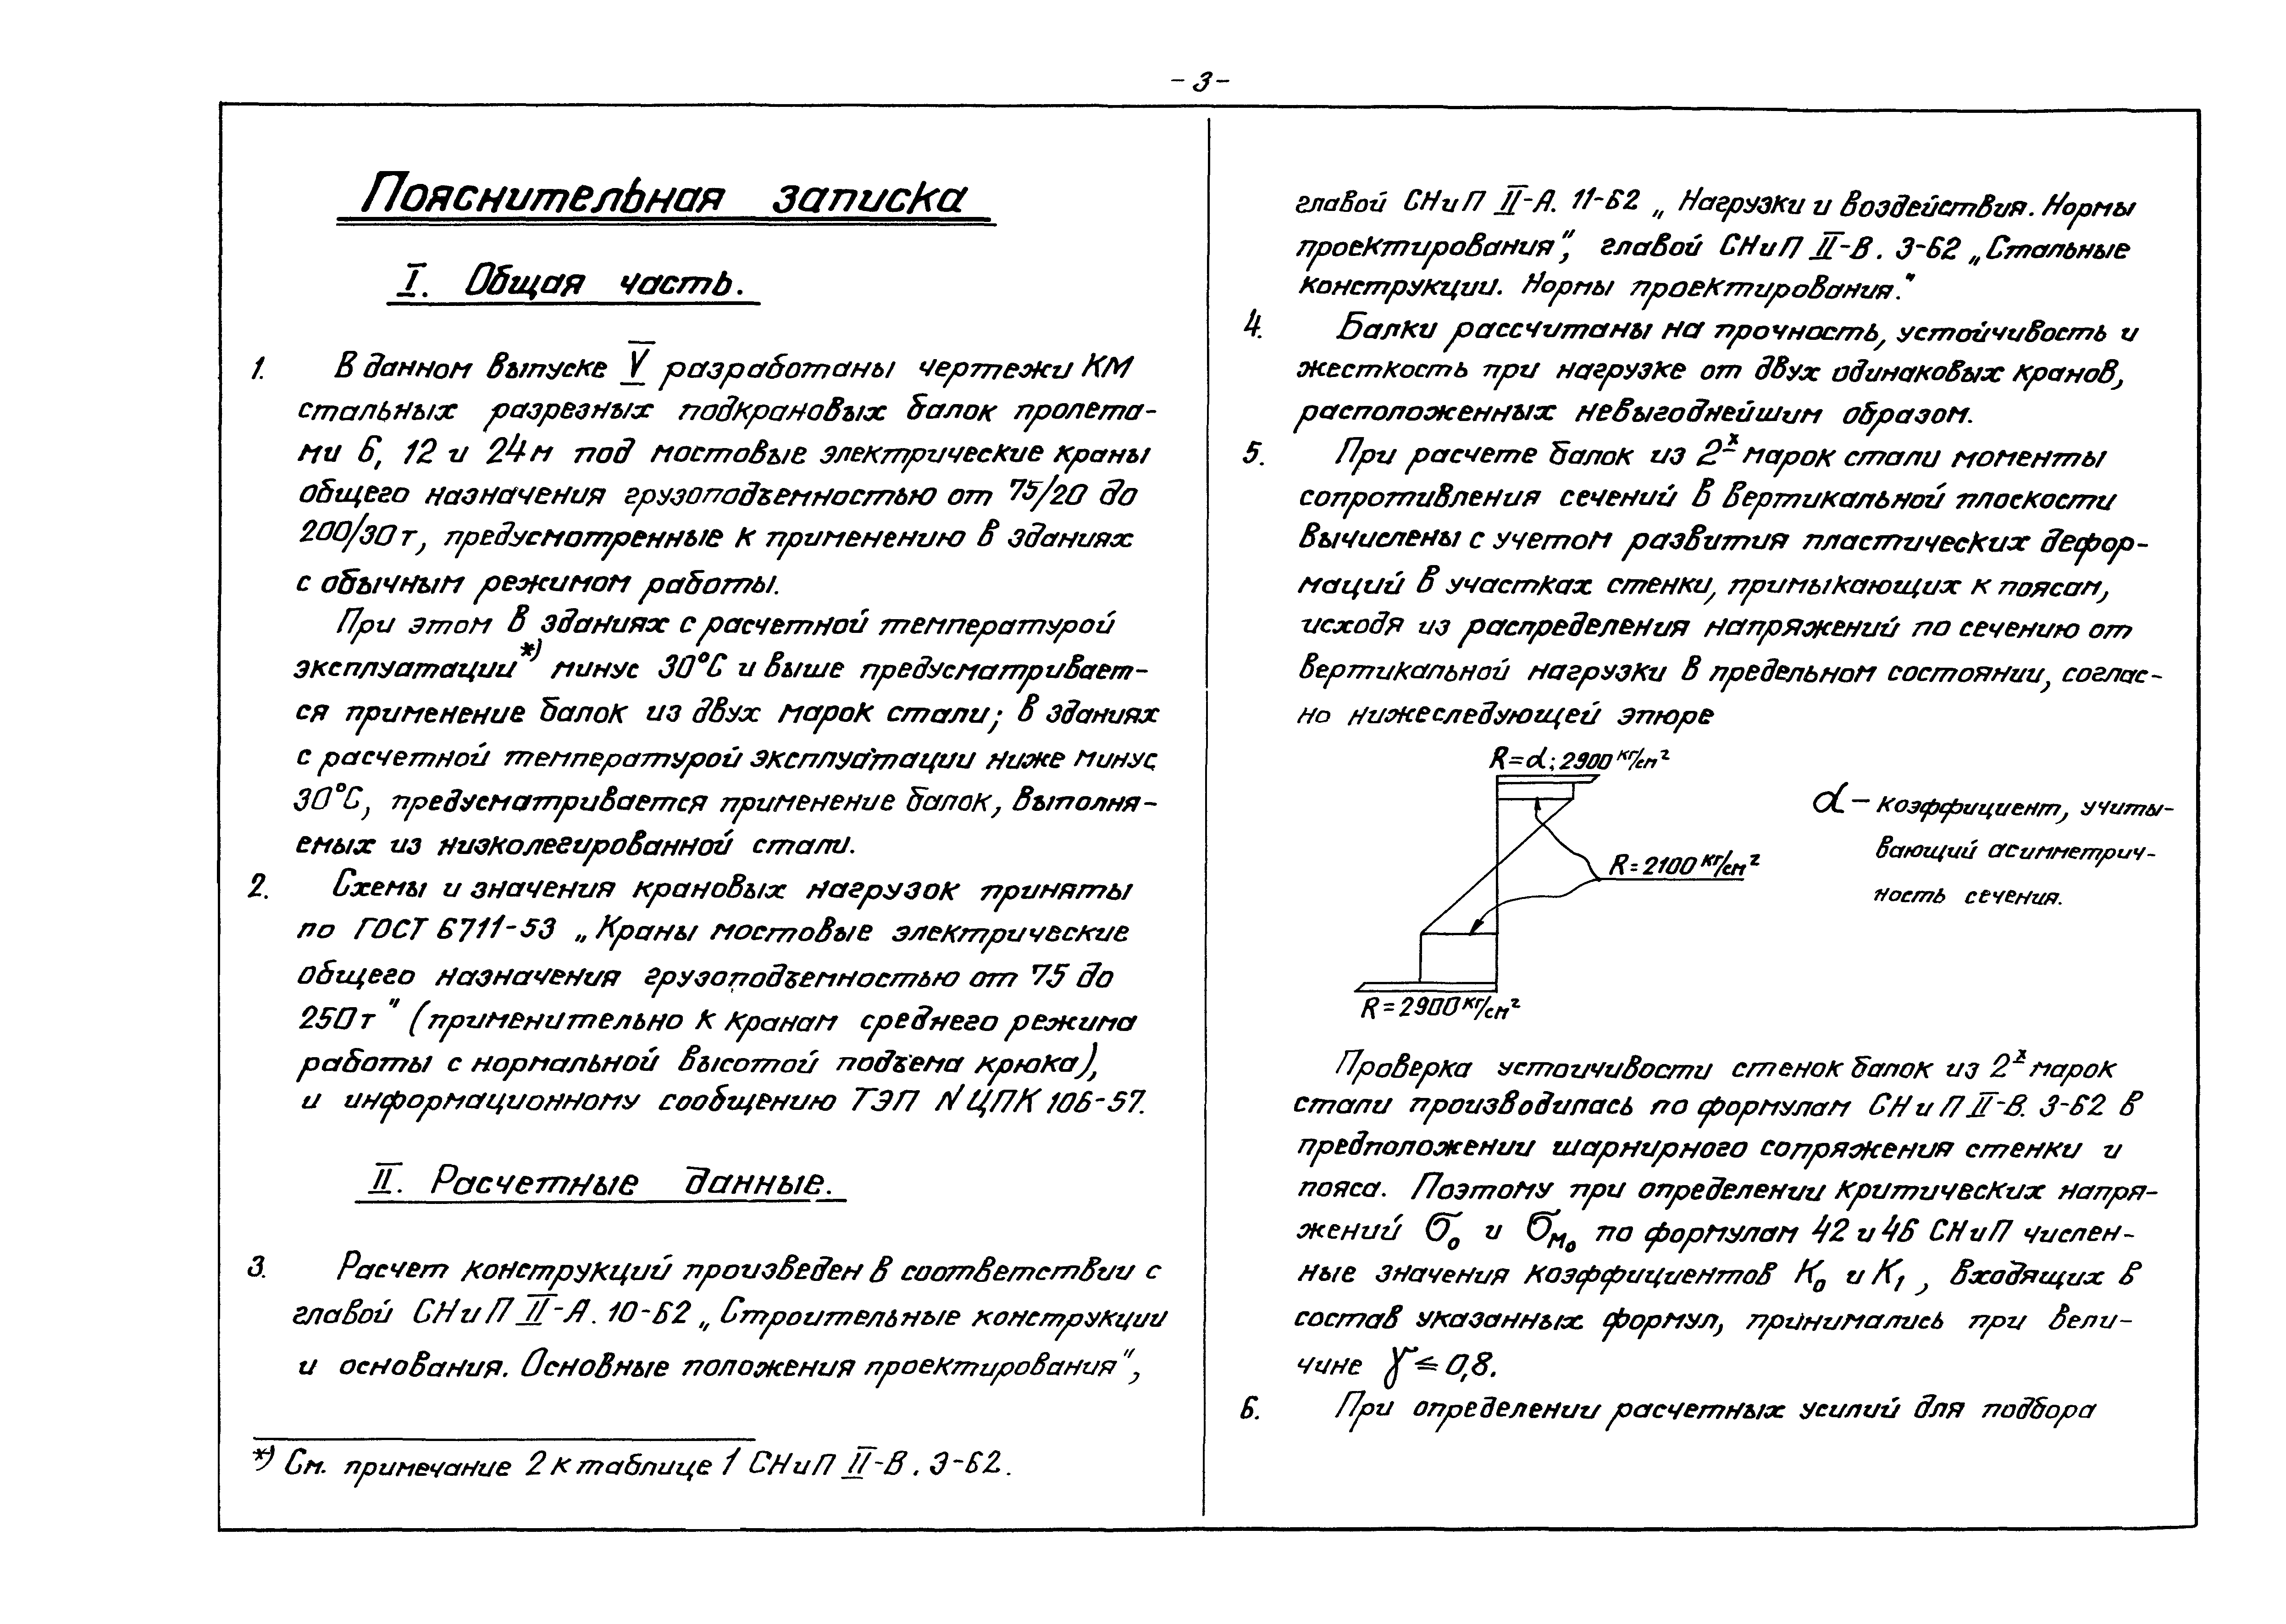 - 3 -
Пояснительная записка
I. Общая часть.
1. В данном выпуске V разработаны чертежи КМ
стальных разрезных подкрановых балок пролета-
ми 6, 12 и 24м под мостовые электрические краны
общего назначения грузоподъемностью от 75/20 до
200/30т, предусмотренные к применению в зданиях
с обычным режимом работы.
При этом в зданиях с расчетной температурой
эксплуатации*) минус 30°С и выше предусматривает-
ся применение балок из двух марок стали; в зданиях
с расчетной температурой эксплуатации ниже минус
30°С, предусматривается применение балок, выполня-
емых из низколегированной стали.
2. Схемы и значения крановых нагрузок приняты
по ГОСТ 6711-53 „Краны мостовые электрические
общего назначения грузоподъемностью от 75 до
250т" (применительно к кранам среднего режима
работы с нормальной высотой подъема крюка),
и информационному сообщению ТЭП N ЦПК 106-57.
II. Расчетные данные.
3. Расчет конструкций произведен в соответствии с
главой СНиП II-А. 10-62 „Строительные конструкции
и основания. Основные положения проектирования",
*) См. примечание 2 к таблице 1 СНиП II-В. 3-62.
главой СНиП II-А. 11-62 „Нагрузки и воздействия. Нормы
проектирования", главой СНиП II-В. 3-62 „Стальные
конструкции. Нормы проектирования."
4. Балки рассчитаны на прочность, устойчивость и
жесткость при нагрузке от двух одинаковых кранов,
расположенных невыгоднейшим образом.
5. При расчете балок из 2х марок стали моменты
сопротивления сечений в вертикальной плоскости
вычислены с учетом развития пластических дефор-
маций в участках стенки, примыкающих к поясам,
исходя из распределения напряжений по сечению от
вертикальной нагрузки в предельном состоянии, соглас-
но нижеследующей эпюре
R=α; 2900 кг/см²
α – коэффициент, учиты-
вающий асимметрич-
ность сечения.
R=2100 кг/см²
R=2900 кг/см²
Проверка устоичивости стенок балок из 2х марок
стали производилась по формулам СНиП II-В. 3-62 в
предположении шарнирного сопряжения стенки и
пояса. Поэтому при определении критических напря-
жений σ₀ и σм₀ по формулам 42 и 46 СНиП числен-
ные значения коэффициентов К₀ и К₁, входящих в
состав указанных формул, принимались при вели-
чине γ ≤ 0,8.
6. При определении расчетных усилий для подбора